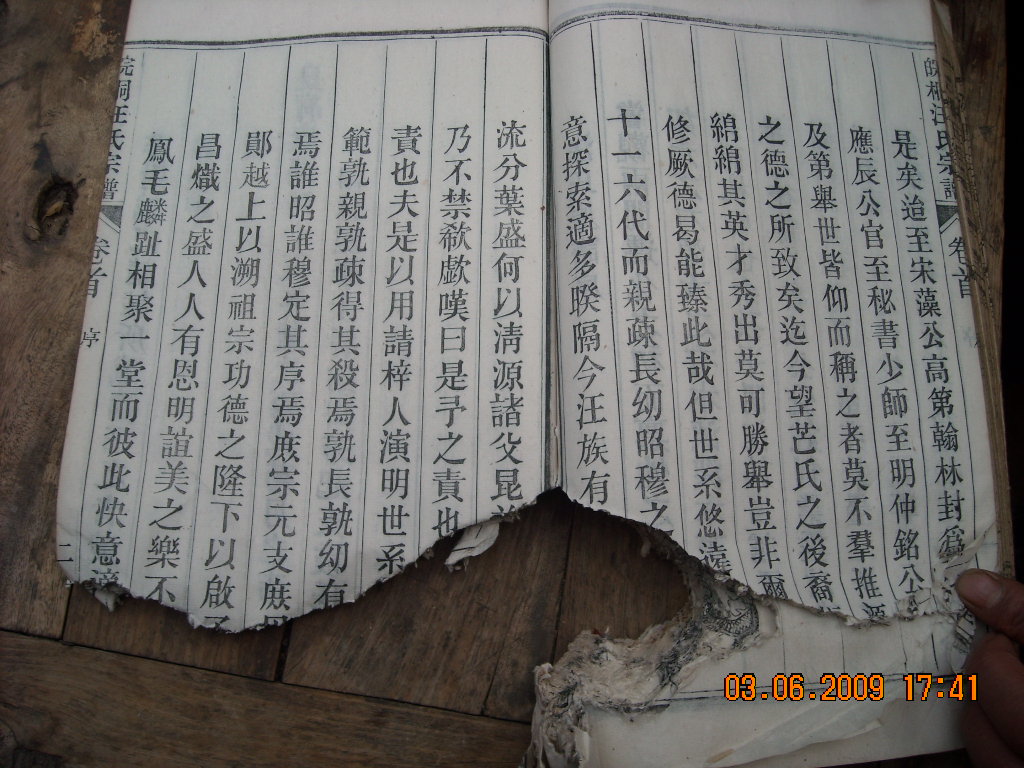 皖桐汪氏宗譜 卷首
是矣迨至宋藻公高第翰林封爲
應辰公官至秘書少師至明仲銘公
及第舉世皆仰而稱之者莫不羣推
之德之所致矣迄今望芒氏之後裔
綿綿其英才秀出莫可勝舉豈非爾
修厥德曷能臻此哉但世系悠遠
十一六代而親疎長幼昭穆之
意探索適多暌隔今汪族有
流分葉盛何以清源諸父昆
乃不禁欷歔嘆曰是予之責也
責也夫是以用請梓人演明世系
範孰親孰疎得其殺焉孰長孰幼有
焉誰昭誰穆定其序焉庶宗元支庶
鄖越上以溯祖宗功德之隆下以啟
昌熾之盛人人有恩明誼美之樂不
鳳毛麟趾相聚一堂而彼此快意適
皖桐汪氏宗譜 卷首 序 二
03.06.2009 17:41